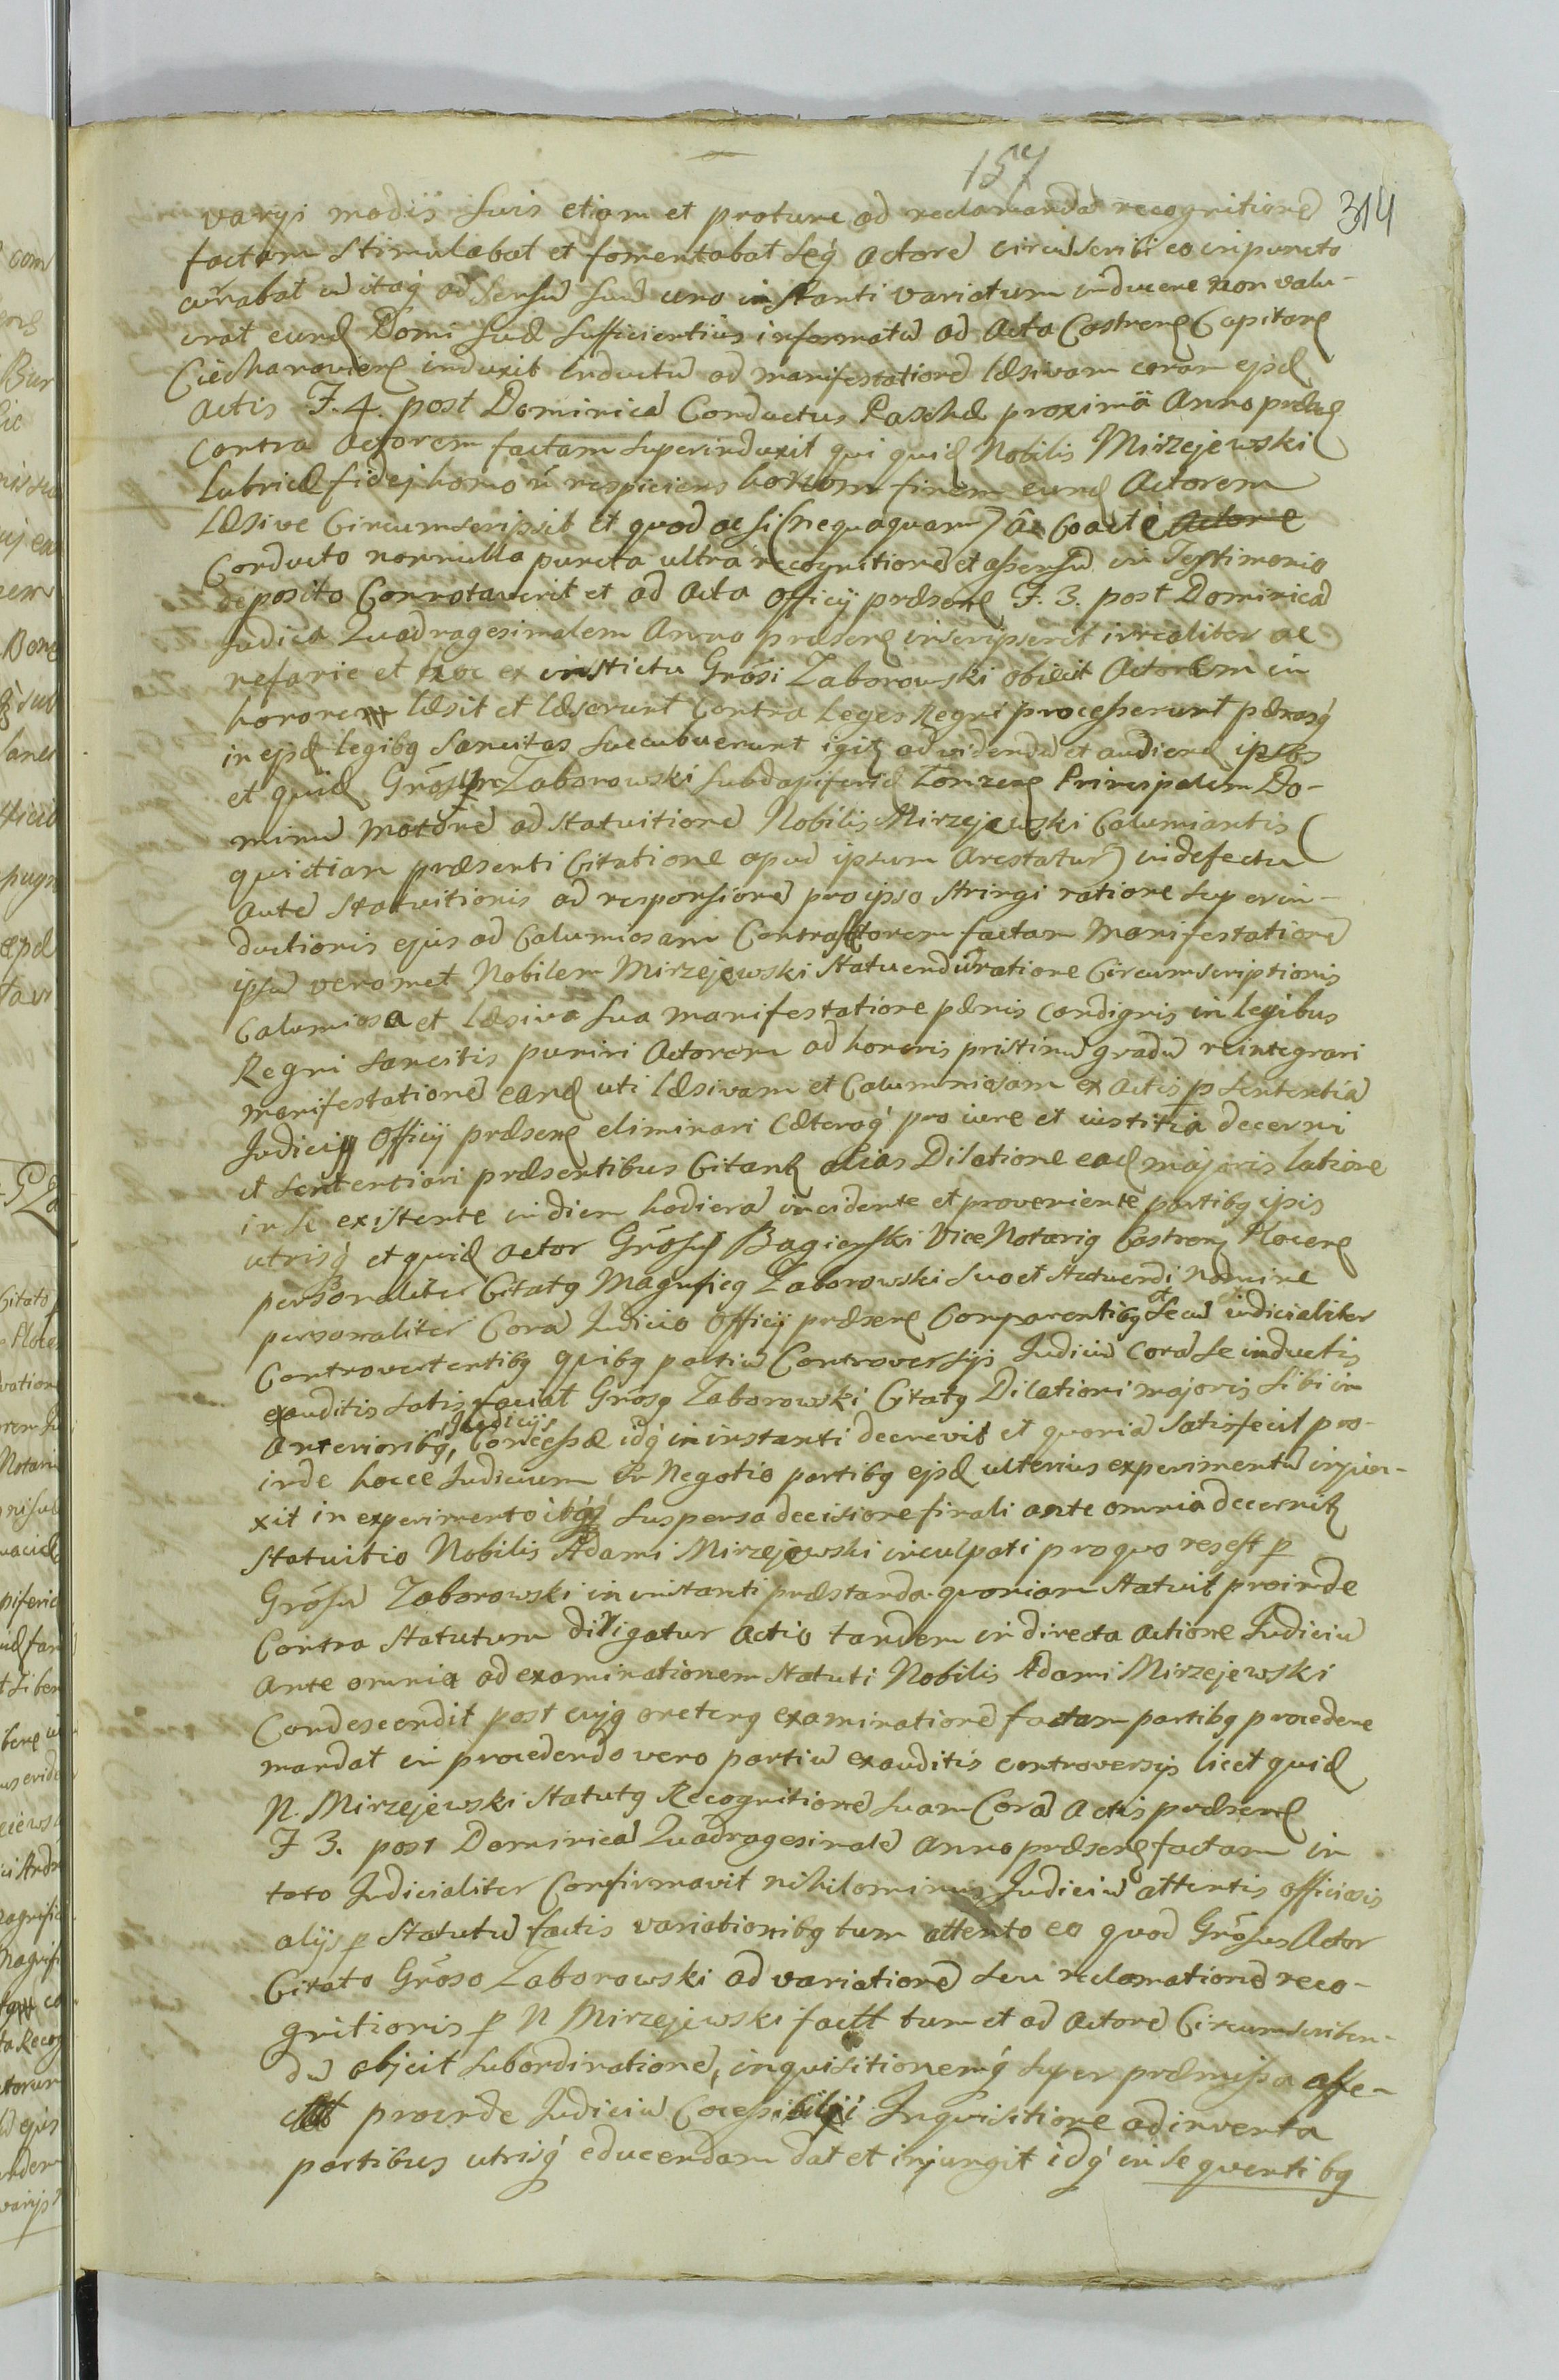 157
314
varyi modis suis etiam et prature ad reclamandã recognitionẽ
factam stimulabat et fomentabat seq́ Actorẽ circũscribi eo in puncto
curabat cũ itaq́ ad sensũ suũ uno instanti variatum inducere non valu-
erat eund Domi suæ sufficientius informatũ ad Acta Castren Capitan
Ciechanovien induxit inductũ ad manifestationẽ læsivam coram ejsd
Actis F. 4. post Dominicã Conductus Paschæ proximã Anno præs
contra Actorem factam superinduxit qui quid Nobilis Mirzejewski
lubricæ fidej homo ñ respiciens bonum finem eund Actorem
Læsive Circumscripsit et quod ac si (nequaquam) à Coacte
Conducto nonnulla puncta ultra recognitionẽ et assensũ in Testimonio
deposito Connotaverit et ad Acta Officij præsen F. 3. post Dominicã
Judica Quadragesimalem Anno præsen inscripserit irrealiter ac
nefarie et hoc ex instictu Grosi Zaborowski obiecit Actorem in
honore læsit et læserunt Contra Leges Regni processerunt pænasq́
in ejsd legibq sancitas succubuerunt igitr ad videndũ et audiend ipsos
et quid Grosum Zaborowski Subdapiferid Lomzen Principalem Do-
minũ motorẽ ad statuitionẽ Nobilis Mirzejewski Calumiantis
qui etiam præsenti Citatione apud ipsum arestatur) in defectu
autẽ Statuitionis ad responsionẽ pro ipso stringi ratione superin-
ductionis ejus ad Calumiosam Contra Actorem factam Manifestationẽ
ipsũ veromet Nobilem Mirzejewski statuendũ ratione Circumscriptionis
Calumiosa et læsiva sua manifestatione pænis condignis in legibus
Regni sancitis puniri Actorem ad honoris pristinũ gradũ reintegrari
manifestationẽ eand uti læsivam et Calumniosam ex actis p sententiã
Judicij Officij præsen eliminari cæteraq́ pro iure et iustitia decerni
et sententiari præsentibus Citantr alias Dilatione ead majoris latione
in se existente in diem hodiernã incidente et proveniente partibq ipsis
utrisq́ et quid Actor Grosus Bagienski Vice Notariq Castren Plocen
personaliter Citatq Magnificq Zaborowski suo et statuendi nomine
personaliter Corã Judicio Officij præsen Comparentibq et secũ iudicialiter
Controvertentibq quibq partiũ Controversijs Judiciũ corã se inductis
exauditis satisfaciat Grosq Zaborowski Citatq Dilationi majoris sibi in
Anterioribq Judicijs Concessæ idq́ in instanti decrevit et quoniã satisfecit pro-
inde hocce Judicium in Negotio partibq ejsd ulterius experimentũ injun-
xit in experimento itaq́ suspensa decisione finali ante omnia decernitr
Statuitio Nobilis Adami Mirzejewski inculpati pro quo res est p
Grosũ Zaborowski in instanti præstanda quoniam statuit proinde
Contra statutum diligatur actio tandem in directa actione Judiciũ
ante omnia ad examinationem statuti Nobilis Adami Mirzejewski
Condescendit post cujq oretenq examinationẽ factam partibq procedere
mandat in procedendo vero partiũ exauditis controversijs licet quid
N. Mirzejewski statutq Recognitionẽ suam Corã Actis præsen
F 3. post Dominicã Quadragesimalẽ Anno præsen factam in
toto Judicialiter Confirmavit nihilominus Judiciũ attentis officiosis
alijs p Statutũ factis variationibq tum attento eo quod Grosus Actor
Citato Groso Zaborowski ad variationẽ seu reclamationẽ reco-
gnitionis p N Mirzejewski factæ tum et ad Actorẽ Circumscriben-
dũ objicit subordinationẽ, inquisitionemq́ super præmissa affe-
ctat proinde Judiciũ Inquisitione adinventa
partibus utrisq́ educendam dat et injungit idq́ in sequentibq